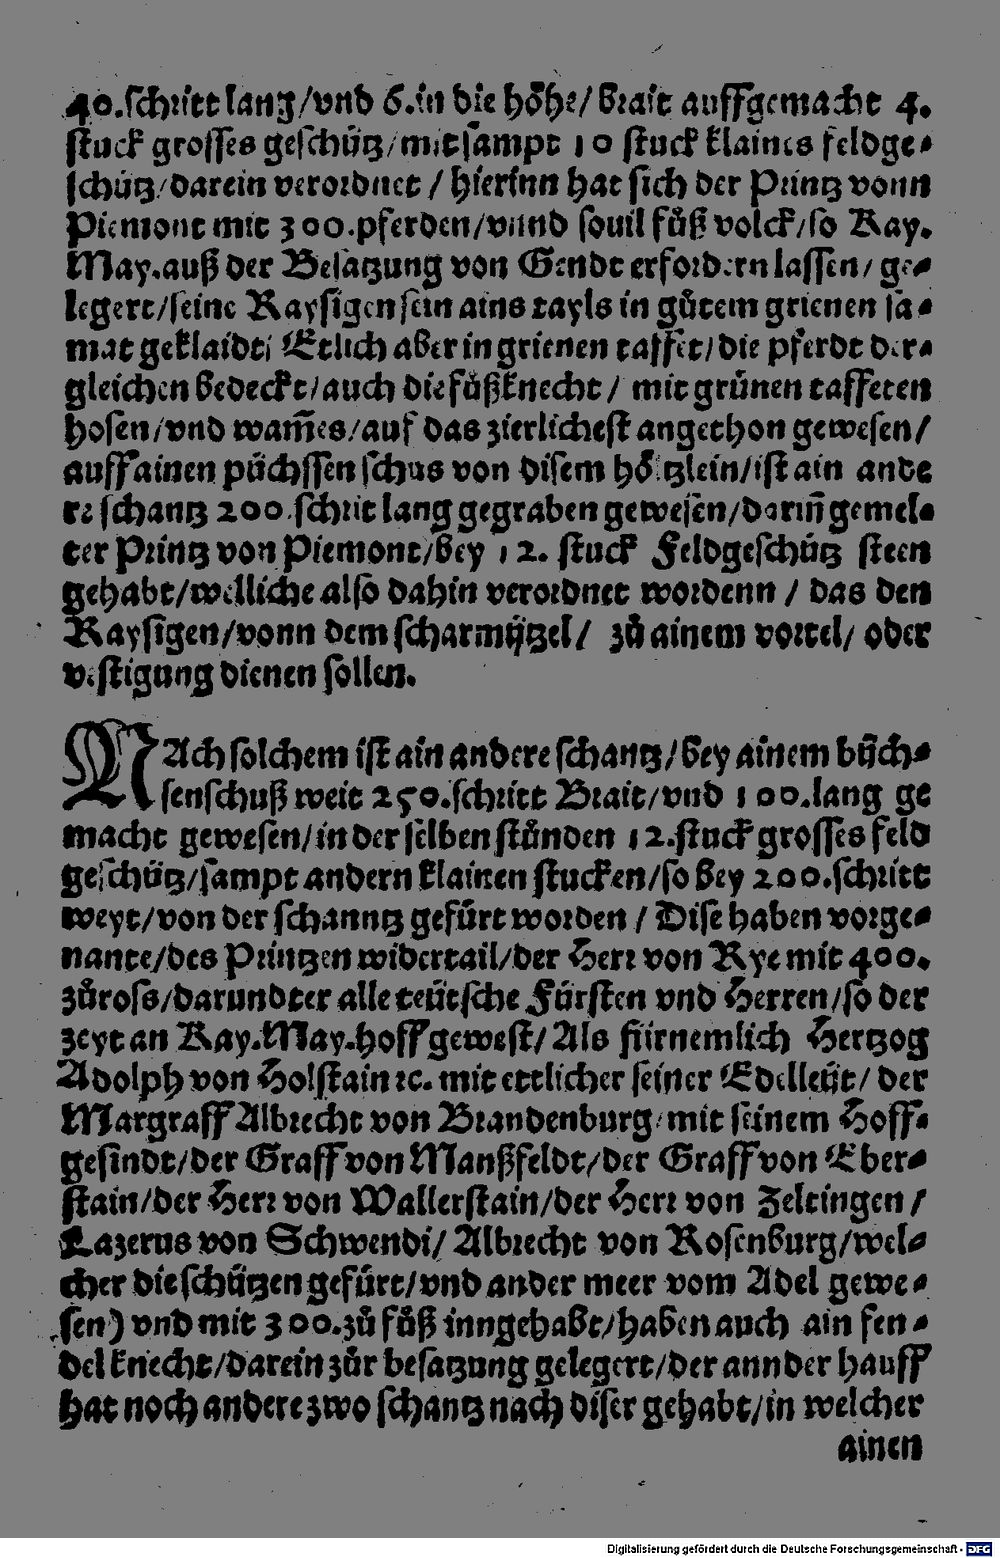 40.schritt lang/vnd 6.in die höhe/brait auffgemacht 4.
stuck grosses geschütz/mitsampt 10 stuck klaines feldge-
schütz/darein verordnet / hierinn hat sich der Printz vonn
Piemont mit 300.pferden/vnnd souil fůß volck/so Kay.
May.auß der Besatzung von Gendt erfordern lassen/ ge-
legert/seine Raysigen sein ains tayls in gůtem grienen sa-
mat geklaidt/ Etlich aber in grienen taffet/die pferdt der-
gleichen bedeckt/auch die fůßknecht / mit grünen taffeten
hosen/vnd wam̃es/auf das zierlichest angethon gewesen/
auff ainen püchssen schus von disem höltzlein/ist ain ande
re schantz 200.schrit lang gegraben gewesen/darin̄ gemel-
ter Printz von Piemont/bey 12. stuck Feldgeschütz steen
gehabt/welliche also dahin verordnet wordenn / das den
Raysigen/vonn dem scharmützel/ zů ainem vortel/ oder
vestigung dienen sollen.
NAch solchem ist ain andere schantz/bey ainem büch-
senschuß weit 250.schritt Brait/vnd 100.lang ge
macht gewesen/in der selben stůnden 12.stuck grosses feld
geschütz/sampt andern klainen stucken/so bey 200.schritt
weyt/von der schanntz gefürt worden / Dise haben vorge-
nante/des Printzen widertail/der Herr von Rye mit 400.
zůross/darundter alle teütsche Fürsten vnd Herren/so der
zeyt an Kay.May.hoff gewest/ Als fürnemlich Hertzog
Adolph von Holstain ꝛc. mit ettlicher seiner Edelleüt/ der
Margraff Albrecht von Brandenburg/mit seinem Hoff-
gesindt/der Graff von Manßfeldt/der Graff von Eber-
stain/der Herr von Wallerstain/der Herr von Zeltingen /
Lazerus von Schwendi/ Albrecht von Rosenburg/wel-
cher die schützen gefürt/vnd ander meer vom Adel gewe-
sen) vnd mit 300.zů fůß inngehabt/haben auch ain fen-
del knecht/darein zůr besatzung gelegert/der annder hauff
hat noch andere zwo schantz nach diser gehabt/in welcher
ainen
Digitalisierung gefördert durch die Deutsche Forschungsgemeinschaft - DFG